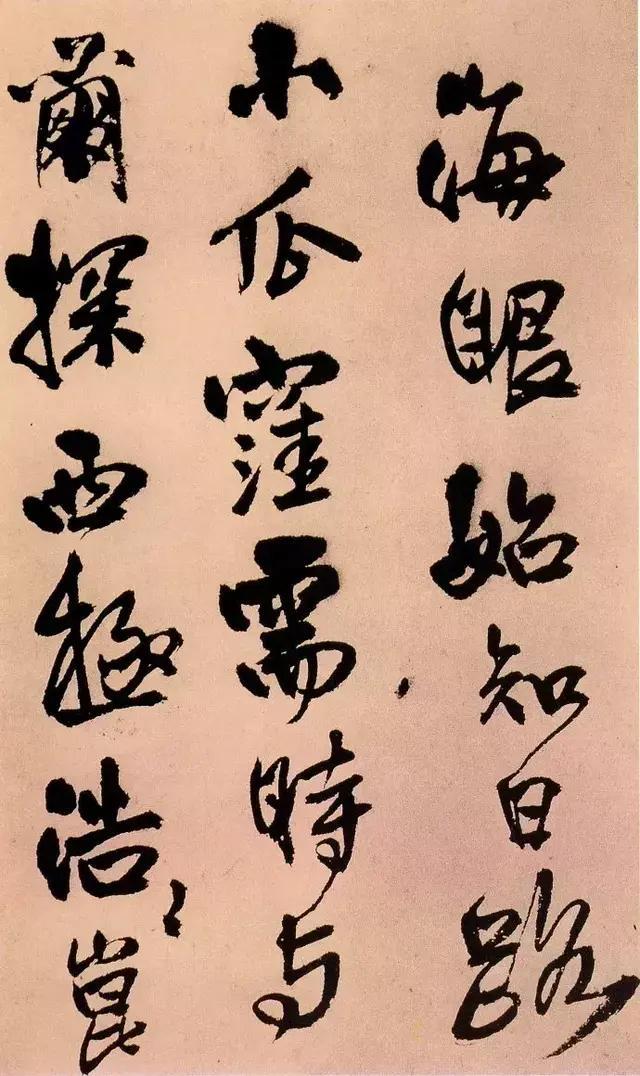 海眼始知日路
小瓜窪需時与
爾探西極浩〻崑